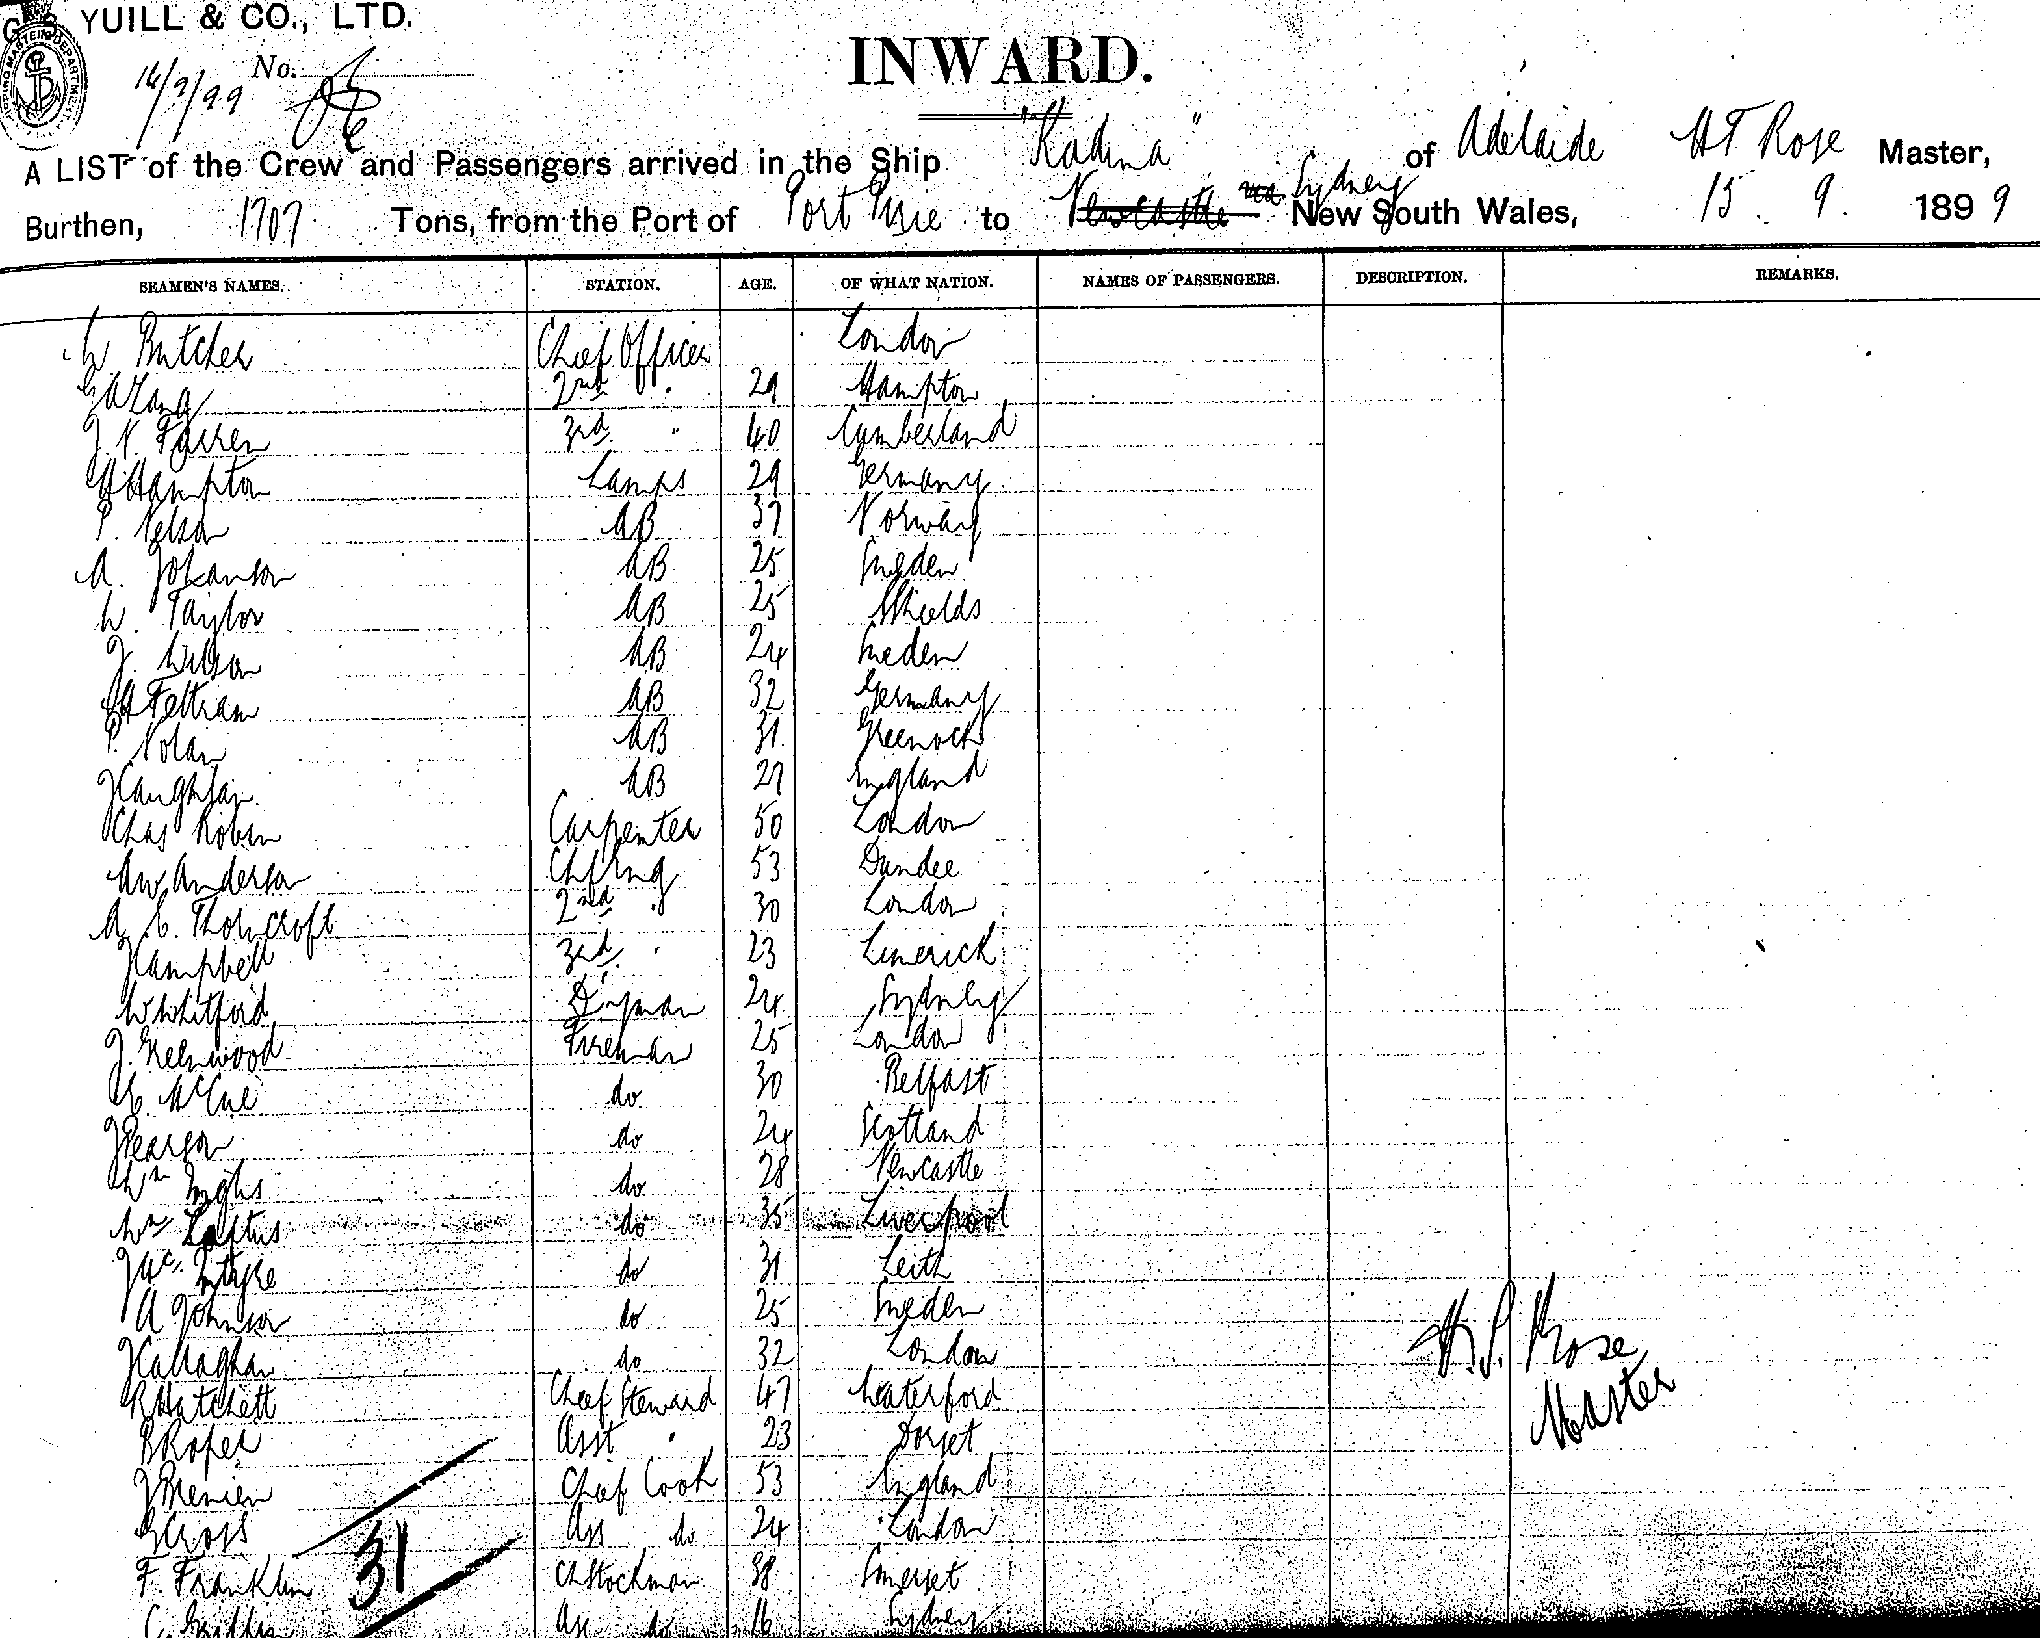 YUILL & CO., LTD.
No.
14/9/99
INWARD.
A LIST of the Crew and Passengers arrived in the Ship "Kadina" of Adelaide H T Rose Master,
Burthen, 1707 Tons, from the Port of Port Pirie to Newcastle via Sydney New South Wales, 15. 9. 1899
SEAMEN'S NAMES. STATION. AGE. OF WHAT NATION. NAMES OF PASSENGERS. DESCRIPTION. REMARKS.
W Butcher Chief Officer London
2nd " 29 Hampton
Farren 3rd " 40 Cumberland
Hampton Lamps 29 Germany
P. Nelson AB 37 Norway
A. Johanson AB 25 Sweden
W. Taylor AB 25 Shields
J. Wilson AB 24 Sweden
Feltram AB 32 Germany
P. Nolan AB 31 Greenock
AB 27 England
Chas Robin Carpenter 50 London
AW Anderson Ch Eng 53 Dundee
A. E. Thorncroft 2nd " 30 London
J Campbell 3rd " 23 Limerick
W Whitford D'yman 24 Sydney
J. Greenwood Fireman 25 London
McCue do 30 Belfast
J Pearson do 24 Scotland
Wm Inglis do 28 Newcastle
Wm Loftus do 35 Liverpool
J McIntyre do 31 Leith
A Johnson do 25 Sweden
J Callaghan do 32 London
R Hatchett Chief Steward 47 Waterford
B Roper Asst " 23 Dorset
J Chief Cook 53 England
G Cross Ass do 24 London
F. Franklin Ch Stockman 38 Somerset
C. Griffin Ass do 16 Sydney
31
H. T. Rose
Master